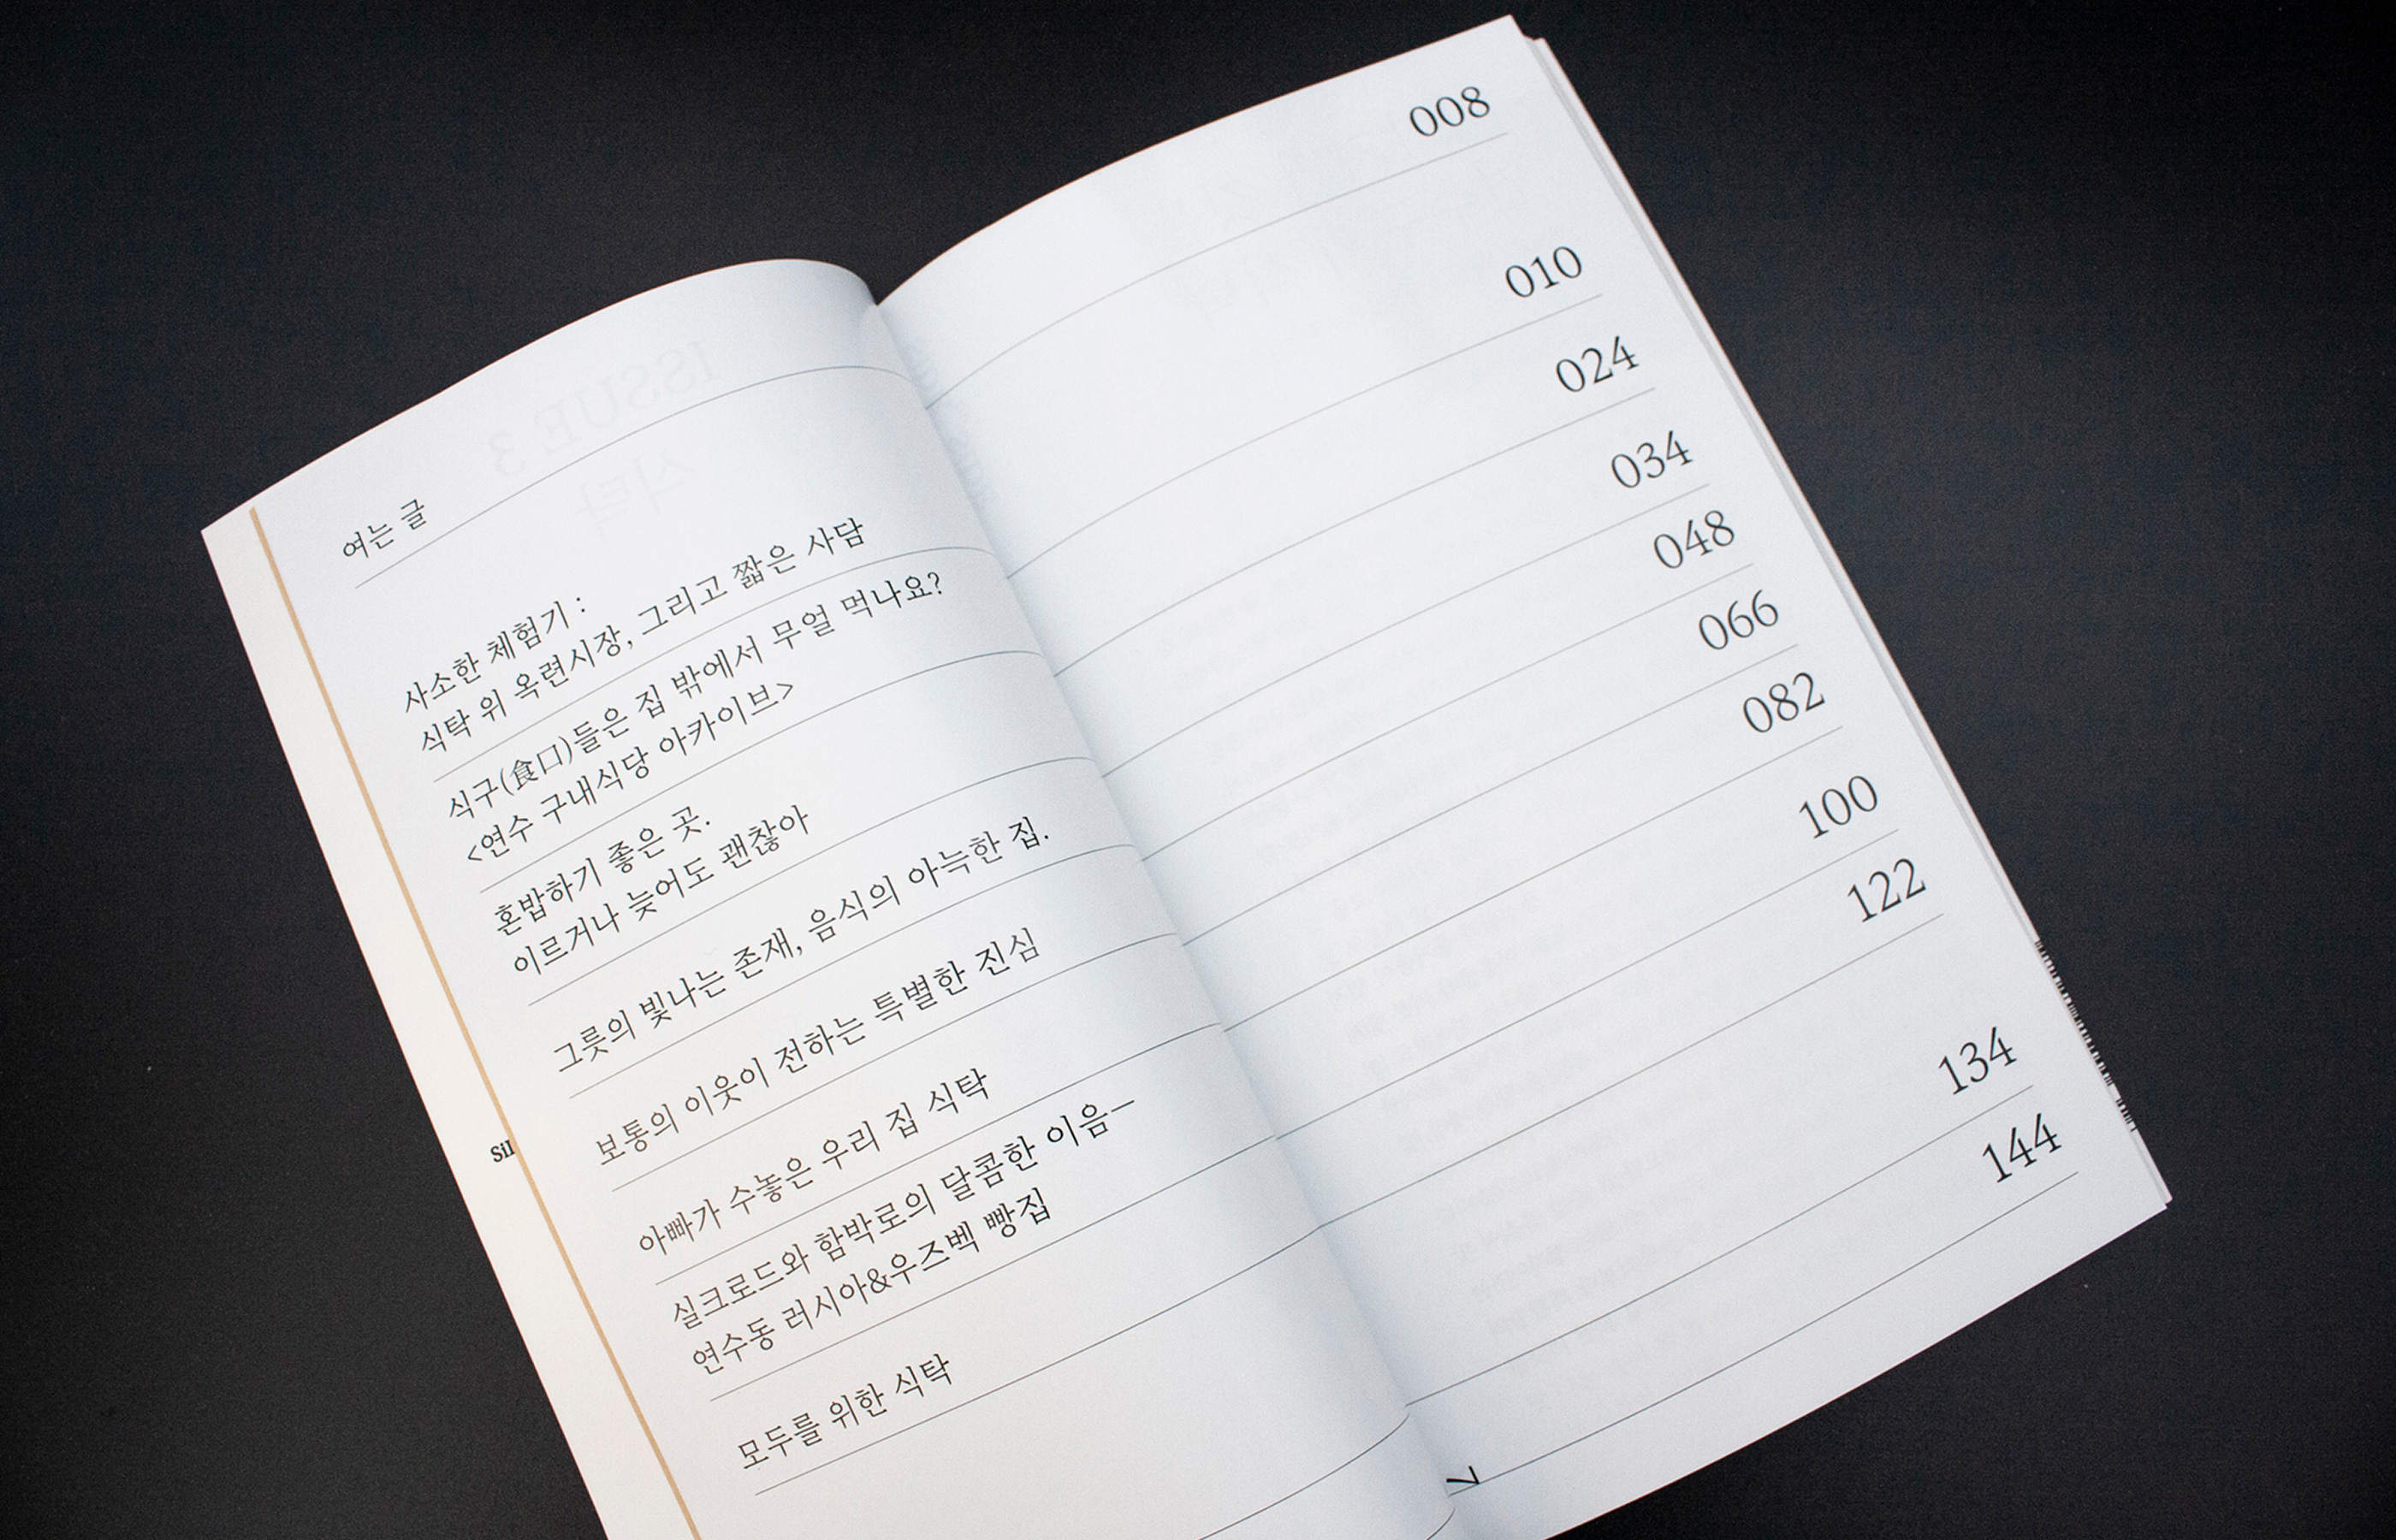 여는 글
사소한 체험기 :
식탁 위 옥련시장, 그리고 짧은 사담
식구(食口)들은 집 밖에서 무얼 먹나요?
<연수 구내식당 아카이브>
혼밥하기 좋은 곳.
이르거나 늦어도 괜찮아
그릇의 빛나는 존재, 음식의 아늑한 집.
보통의 이웃이 전하는 특별한 진심
아빠가 수놓은 우리 집 식탁
실크로드와 함박로의 달콤한 이음–
연수동 러시아&우즈벡 빵집
모두를 위한 식탁
Sil
008
010
024
034
048
066
082
100
122
134
144
ISSUE 3
식탁